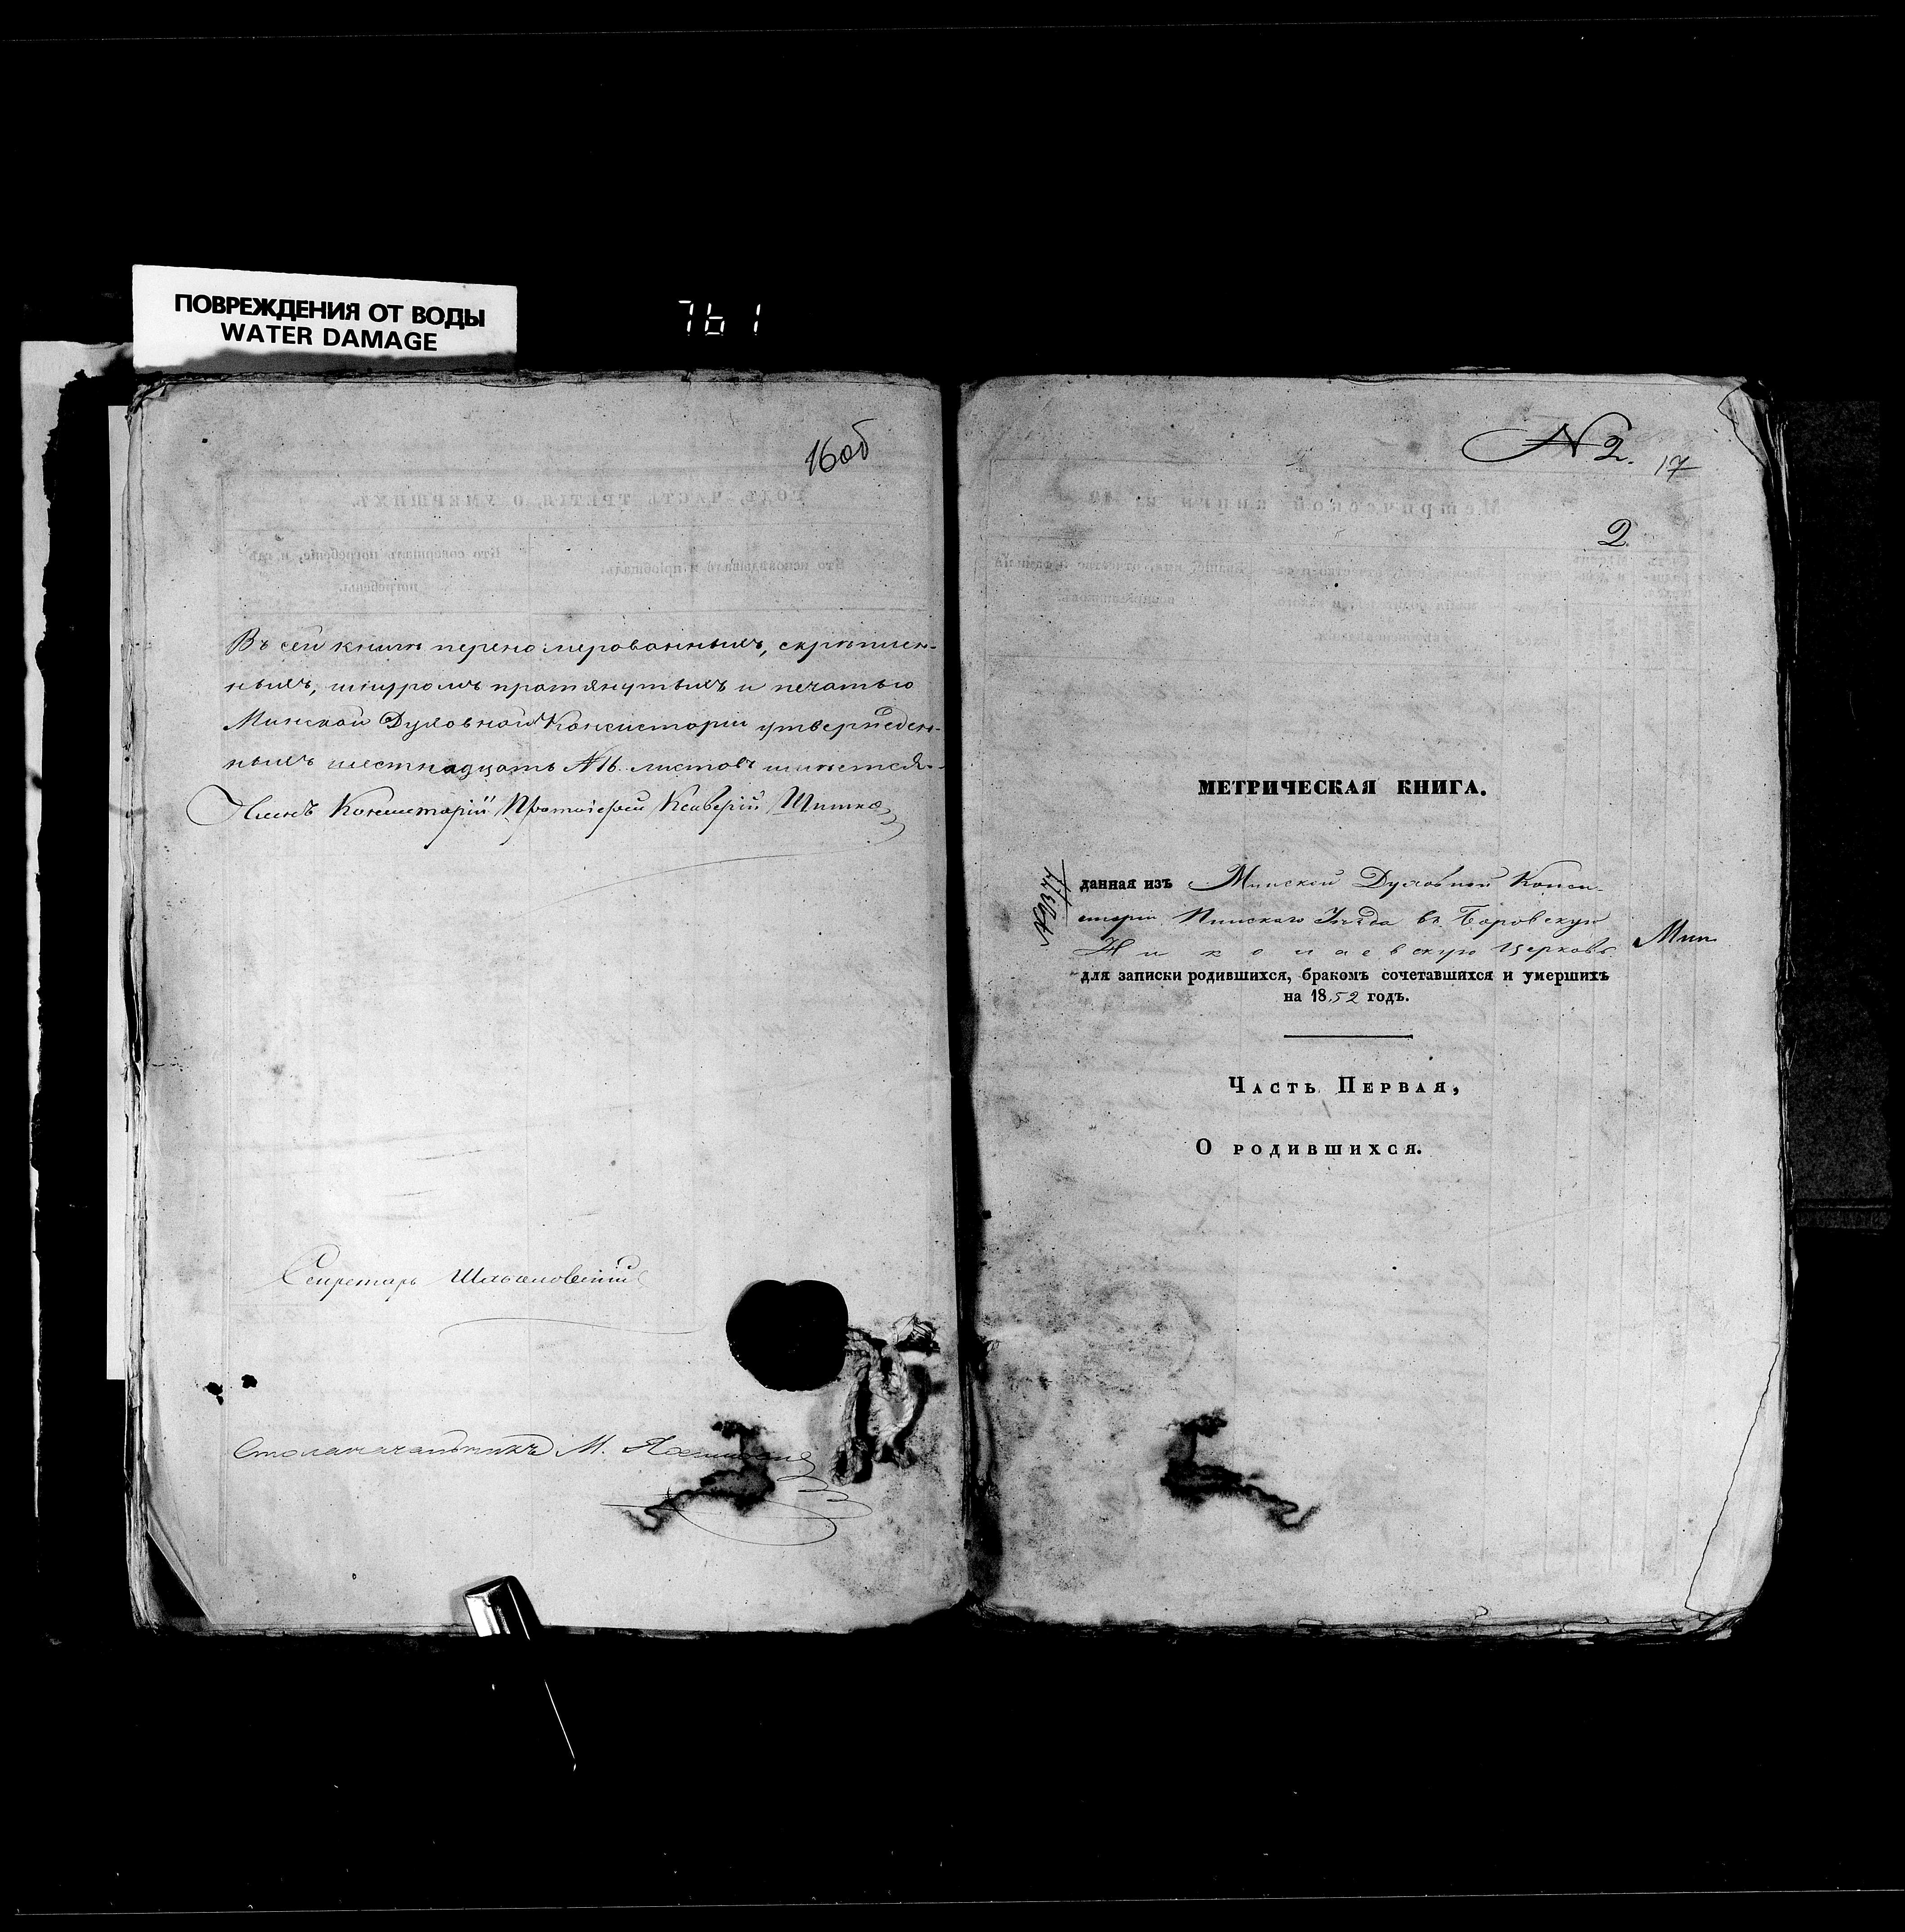 ПОВРЕЖДЕНИЯ ОТ ВОДЫ
WATER DAMAGE
761
16об
Въ сей книгѣ переномерованныхъ, скрѣплен-
ныхъ, шнуромъ протянутыхъ и печатью
Минской Духовной Консисторіи утвержден-
ныхъ шестнадцать №16. листовъ имѣется.
Членъ Консисторіи Протоіерей Ксаверій
Секретарь
Столоначальникъ М.
N 2.
17
2
МЕТРИЧЕСКАЯ КНИГА.
данная изъ Минской Духовной Конси-
сторіи Пинскаго Уѣзда въ Боровскую
Николаевскую Церковь
Мин
для записки родившихся, бракомъ сочетавшихся и умершихъ
на 1852 годъ.
Часть Первая,
О родившихся.